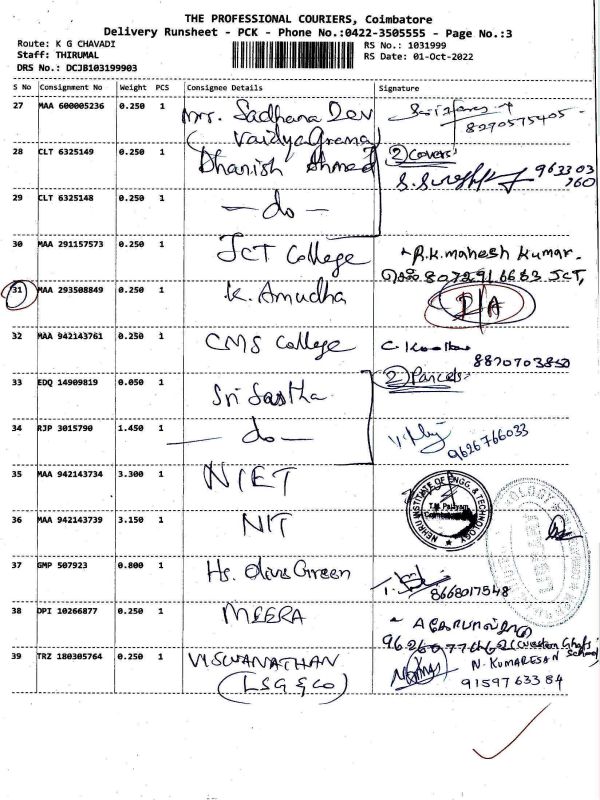 THE PROFESSIONAL COURIERS, Coimbatore
Delivery Runsheet - PCK - Phone No.:0422-3505555 - Page No.:3
Route: K G CHAVADI
Staff: THIRUMAL
DRS No.: DCJB103199903
RS No.: 1031999
RS Date: 01-Oct-2022
S No Consignment No Weight PCS Consignee Details Signature
27 MAA 600005236 0.250 1 Mrs. Sadhana Dev
(VaidyaGrama) 8290575405
28 CLT 6325149 0.250 1 Dhanish Ahmed (2) Covers
963303
760
29 CLT 6325148 0.250 1 — do —
30 MAA 291157573 0.250 1 JCT College R.K. mahesh Kumar.
8072916683 JCT,
31 MAA 293508849 0.250 1 K. Amudha D/A
32 MAA 942143761 0.250 1 CMS College
8870703850
33 EDQ 14909819 0.050 1 Sri Sastha (2) Parcels
34 RJP 3015790 1.450 1 — do —
9626766033
35 MAA 942143734 3.300 1 NIET
NEHRU INSTITUTE OF ENGG. & TECHNOLOGY
T.M. Palayam
Coimbatore
36 MAA 942143739 3.150 1 NIT
37 GMP 507923 0.800 1 Hs. Olivs Green
8668017548
38 DPI 10266877 0.250 1 MEERA
39 TRZ 180305764 0.250 1 VISWANATHAN N. KUMARESAN
(LSG & CO) 9159763384